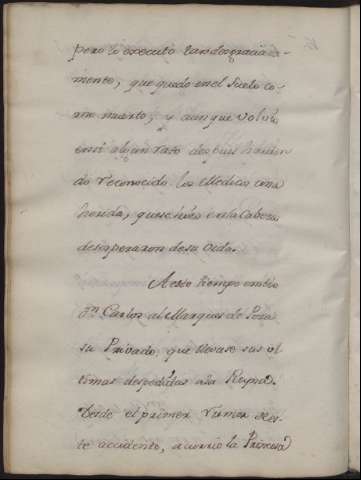 pero lo executó tan desgraciada-
mente, que quedó en el suelo co-
mo muerto; y aunque volvió
en sí algun rato despues havien
do reconocido los Medicos una
herida, que se hizo en la Cabeza
desesperaron de su vida.
A este tiempo embió
Dn. Carlos al Marques de Posa
su Privado, que llevase sus ul
timas despedidas a la Reyna.
Desde el primer rumor de es-
te accidente, acurrió la Princesa